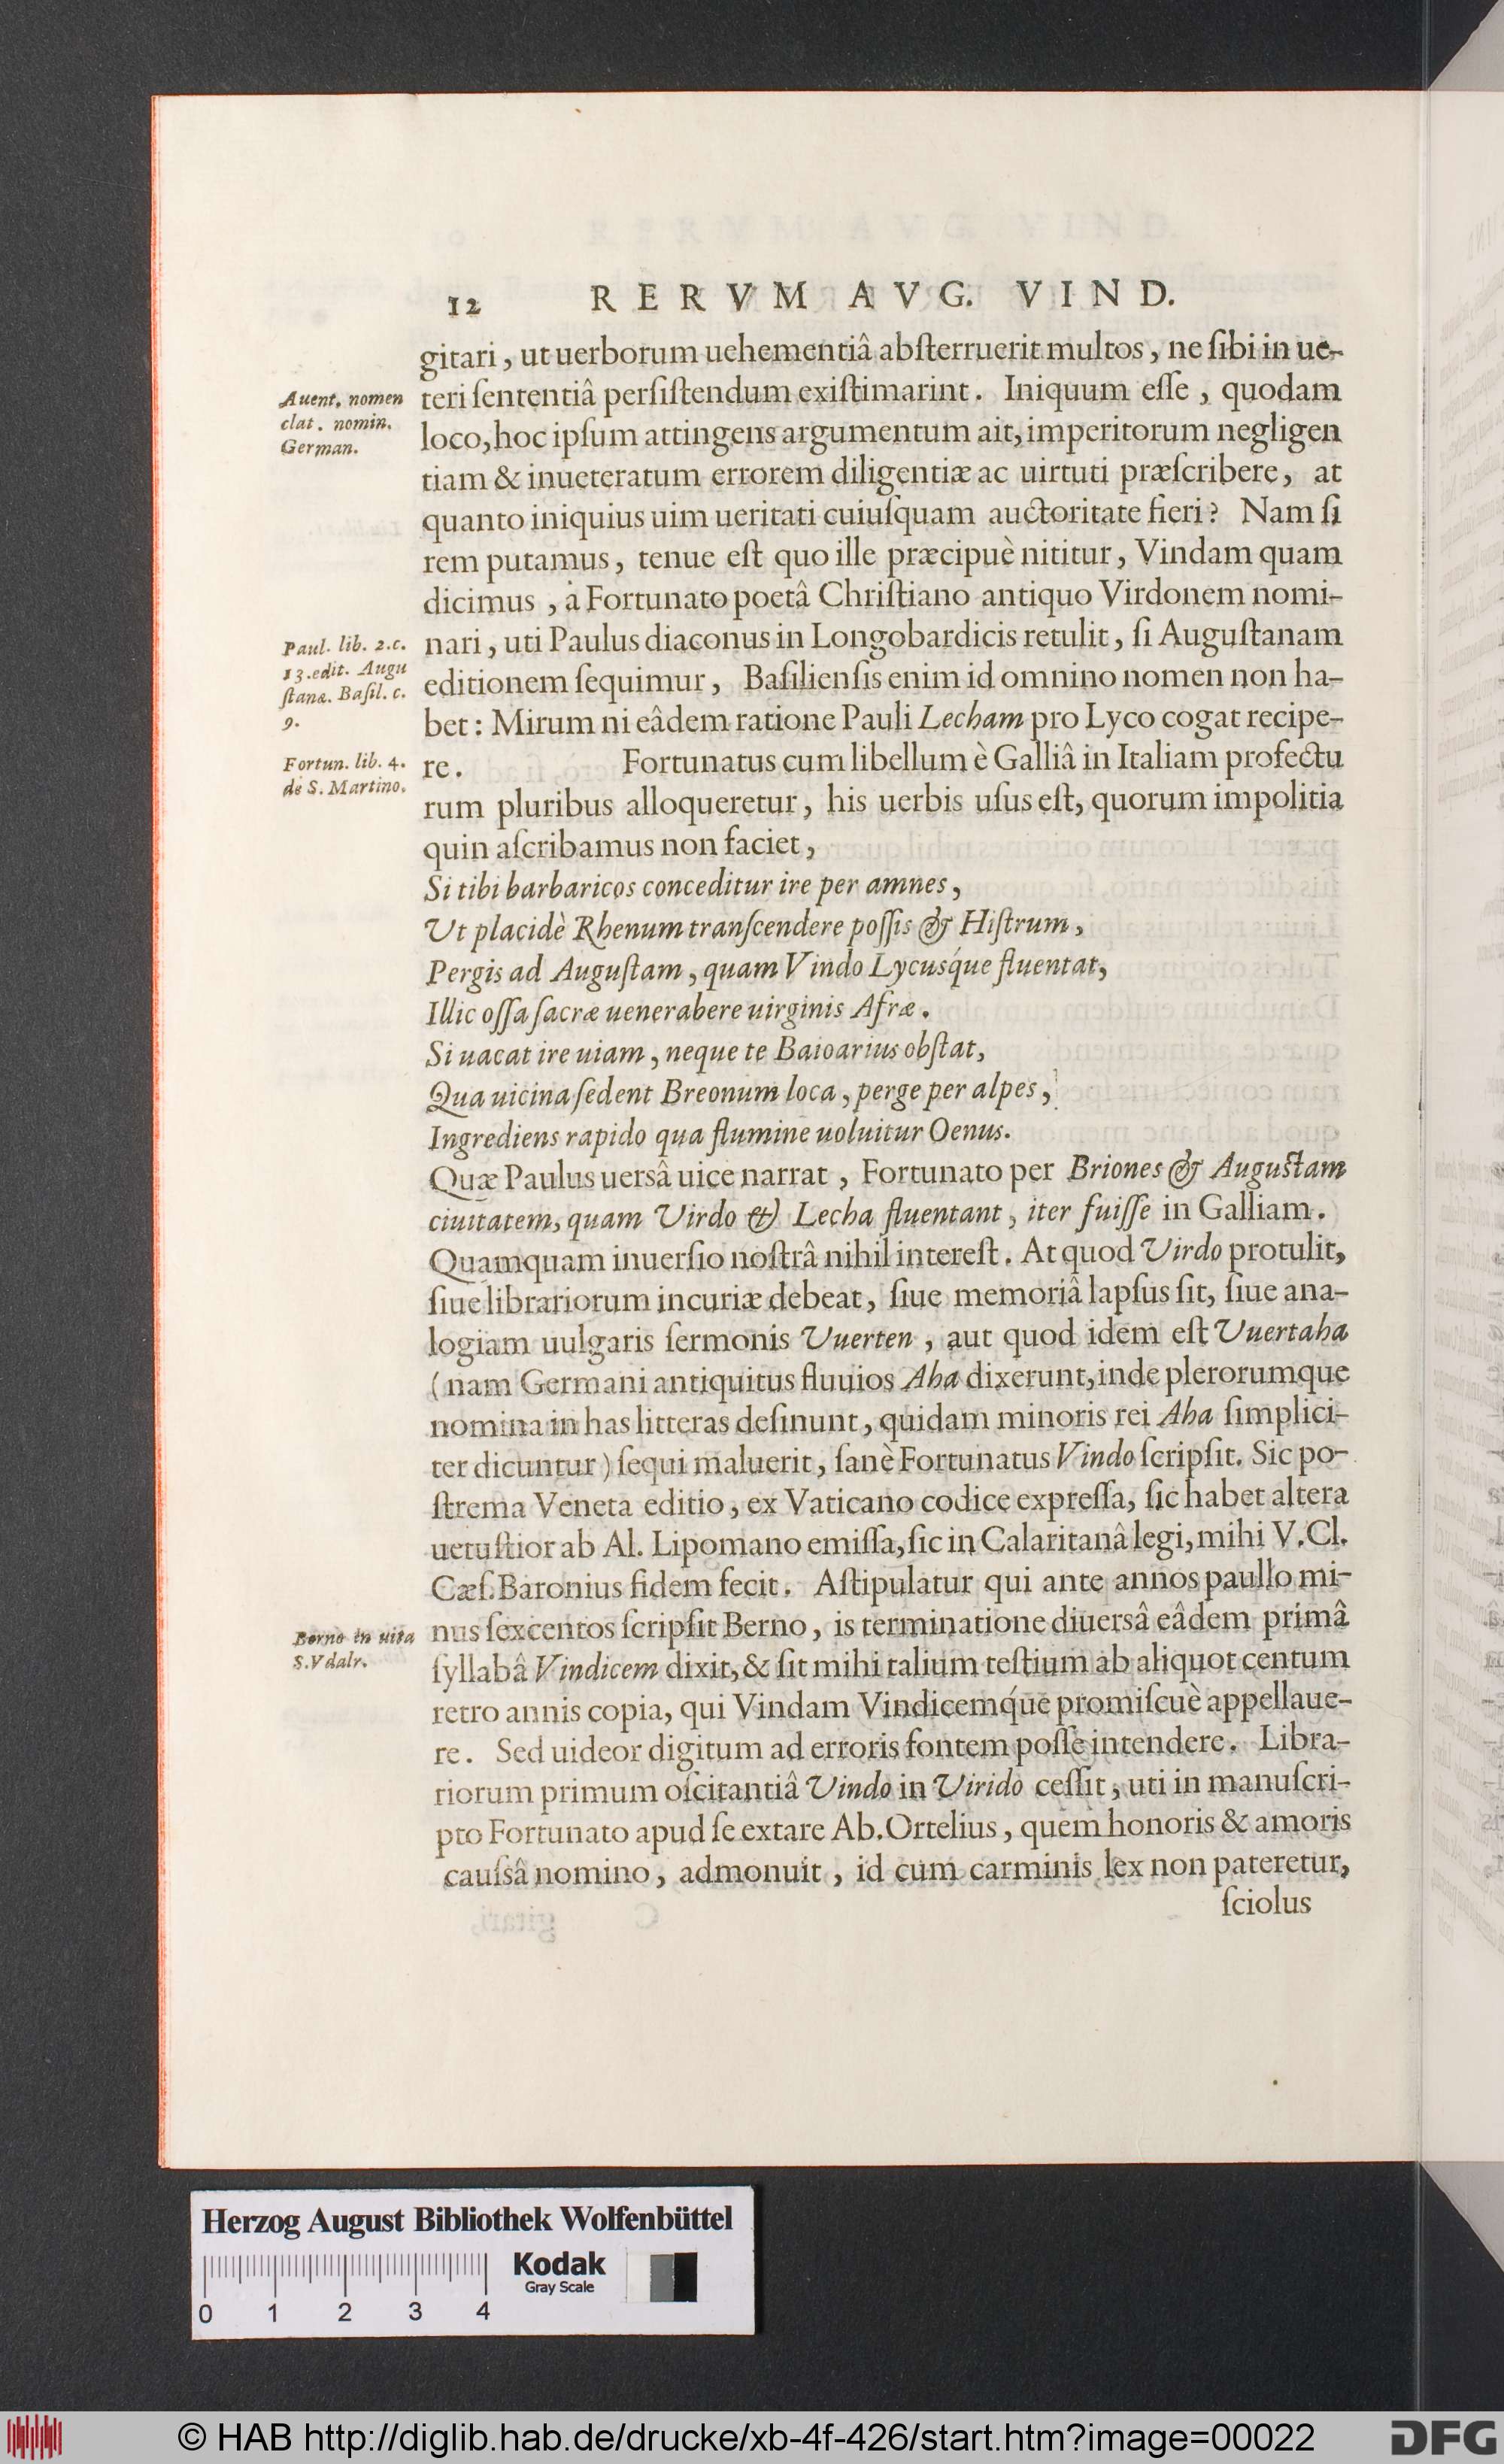 12 RERVM AVG. VIND.
gitari, ut uerborum uehementiâ abſterruerit multos, ne ſibi in ue-
Auent. nomen
clat. nomin.
German.
teri ſententiâ perſiſtendum exiſtimarint. Iniquum eſſe, quodam
loco, hoc ipſum attingens argumentum ait, imperitorum negligen
tiam & inueteratum errorem diligentiæ ac uirtuti præſcribere, at
quanto iniquius uim ueritati cuiuſquam auctoritate fieri? Nam ſi
rem putamus, tenue eſt quo ille præcipuè nititur, Vindam quam
dicimus, à Fortunato poetâ Chriſtiano antiquo Virdonem nomi-
Paul. lib. 2.c.
13.edit. Augu
ſtanæ. Baſil. c.
9.
nari, uti Paulus diaconus in Longobardicis retulit, ſi Auguſtanam
editionem ſequimur, Baſilienſis enim id omnino nomen non ha-
bet: Mirum ni eâdem ratione Pauli Lecham pro Lyco cogat recipe-
Fortun. lib. 4.
de S. Martino.
re. Fortunatus cum libellum è Galliâ in Italiam profectu
rum pluribus alloqueretur, his uerbis uſus eſt, quorum impolitia
quin aſcribamus non faciet,
Si tibi barbaricos conceditur ire per amnes,
Ut placidè Rhenum tranſcendere poſſis & Hiſtrum,
Pergis ad Auguſtam, quam Vindo Lycusq́ue fluentat,
Illic oſſa ſacræ uenerabere uirginis Afræ.
Si uacat ire uiam, neque te Baioarius obſtat,
Qua uicina ſedent Breonum loca, perge per alpes,
Ingrediens rapido qua flumine uoluitur Oenus.
Quæ Paulus uersâ uice narrat, Fortunato per Briones & Auguſtam
ciuitatem, quam Virdo & Lecha fluentant, iter fuiſſe in Galliam.
Quamquam inuerſio noſtrâ nihil intereſt. At quod Virdo protulit,
ſiue librariorum incuriæ debeat, ſiue memoriâ lapſus ſit, ſiue ana-
logiam uulgaris ſermonis Vuerten, aut quod idem eſt Vuertaha
(nam Germani antiquitus fluuios Aha dixerunt, inde plerorumque
nomina in has litteras deſinunt, quidam minoris rei Aha ſimplici-
ter dicuntur) ſequi maluerit, ſanè Fortunatus Vindo ſcripſit. Sic po-
ſtrema Veneta editio, ex Vaticano codice expreſſa, ſic habet altera
uetuſtior ab Al. Lipomano emiſſa, ſic in Calaritanâ legi, mihi V. Cl.
Cæſ. Baronius fidem fecit. Aſtipulatur qui ante annos paullo mi-
Berno in uita
S. Vdalr.
nus ſexcentos ſcripſit Berno, is terminatione diuersâ eâdem primâ
ſyllabâ Vindicem dixit, & ſit mihi talium teſtium ab aliquot centum
retro annis copia, qui Vindam Vindicemq́ue promiſcuè appellaue-
re. Sed uideor digitum ad erroris fontem poſſe intendere. Libra-
riorum primum oſcitantiâ Vindo in Virido ceſſit, uti in manuſcri-
pto Fortunato apud ſe extare Ab. Ortelius, quem honoris & amoris
cauſsâ nomino, admonuit, id cum carminis lex non pateretur,
ſciolus
Herzog August Bibliothek Wolfenbüttel
Kodak
Gray Scale
0 1 2 3 4
© HAB http://diglib.hab.de/drucke/xb-4f-426/start.htm?image=00022
DFG